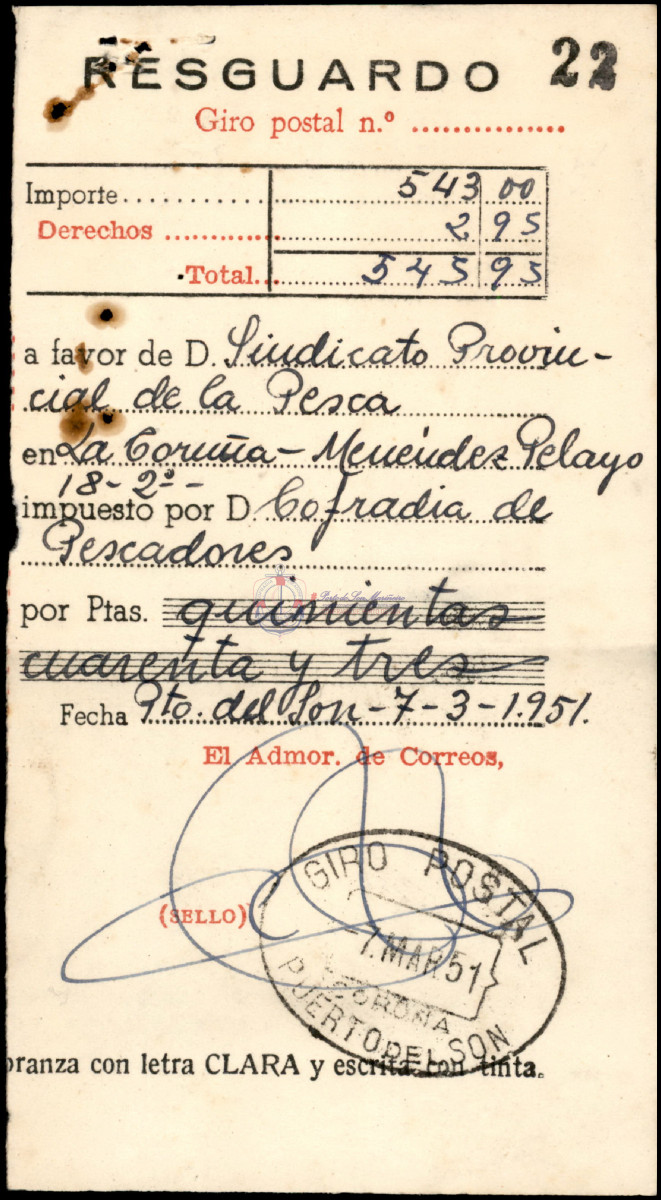 RESGUARDO 22
Giro postal n.º ................
Importe........... 543 00
Derechos ............ 2 95
Total... 545 95
a favor de D. Sindicato Provin-
cial de la Pesca
en La Coruña - Menéndez Pelayo
18-2º-
impuesto por D. Cofradia de
Pescadores
Porto do Son Mariñeiro
por Ptas. quinientas
cuarenta y tres
Fecha Pto. del Son - 7-3-1.951.
El Admor. de Correos,
GIRO POSTAL
(SELLO)
-7.MAR.51
CORUÑA
PUERTO DEL SON
branza con letra CLARA y escrita con tinta.